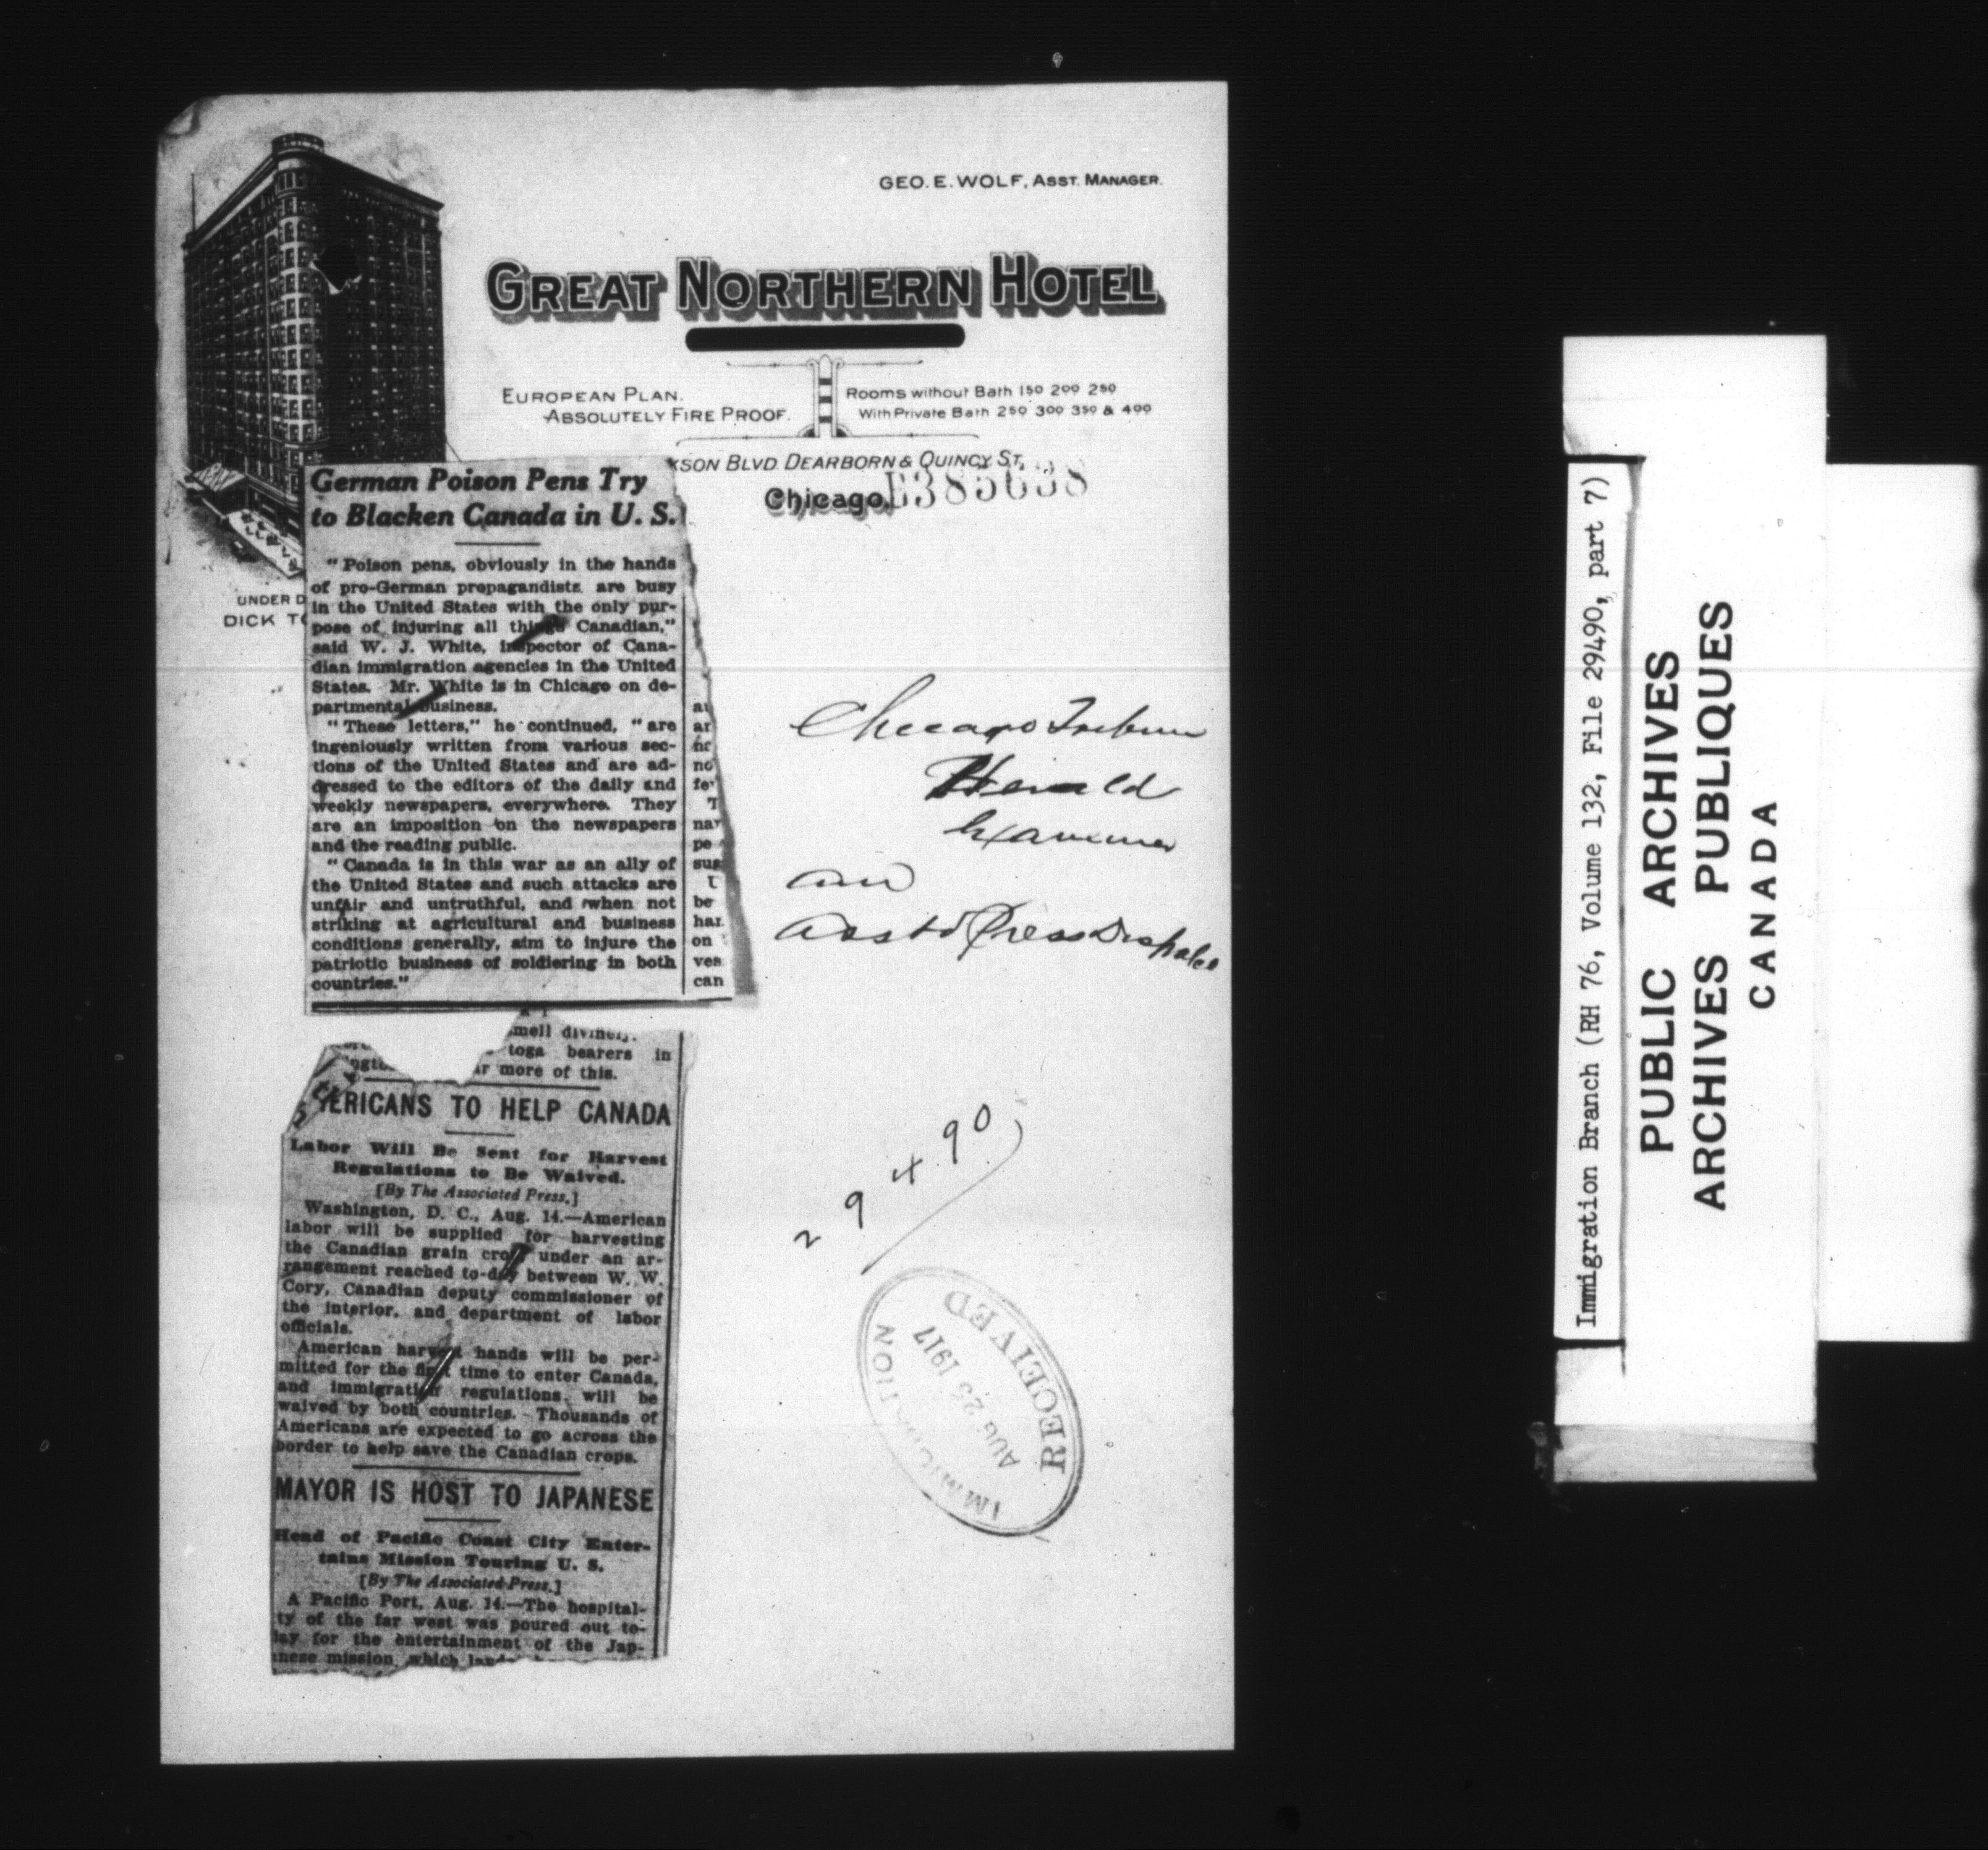 GEO. E. WOLF, ASST. MANAGER.
GREAT NORTHERN HOTEL
EUROPEAN PLAN.
ABSOLUTELY FIRE PROOF.
Rooms without Bath 150 200 250
With Private Bath 250 300 350 & 400
KSON BLVD. DEARBORN & QUINCY ST.
Chicago,
UNDER D
DICK TO
German Poison Pens Try
to Blacken Canada in U. S.
"Poison pens, obviously in the hands
of pro-German propagandists are busy
in the United States with the only pur-
pose of injuring all things Canadian,"
said W. J. White, inspector of Cana-
dian immigration agencies in the United
States. Mr. White is in Chicago on de-
partmental business.
"These letters," he continued, "are
ingeniously written from various sec-
tions of the United States and are ad-
dressed to the editors of the daily and
weekly newspapers, everywhere. They
are an imposition on the newspapers
and the reading public.
"Canada is in this war as an ally of
the United States and such attacks are
unfair and untruthful, and when not
striking at agricultural and business
conditions generally, aim to injure the
patriotic business of soldiering in both
countries."
no
pe
be
har
on
ves
can
Chicago Tribune
Herald
Examiner
mell divinely.
toga bearers in
r more of this.
ERICANS TO HELP CANADA
Labor Will Be Sent for Harvest
Regulations to Be Waived.
[By The Associated Press.]
Washington, D. C., Aug. 14.—American
labor will be supplied for harvesting
the Canadian grain crop under an ar-
rangement reached to-day between W. W.
Cory, Canadian deputy commissioner of
the interior, and department of labor
officials.
American harvest hands will be per-
mitted for the first time to enter Canada,
and immigration regulations will be
waived by both countries. Thousands of
Americans are expected to go across the
border to help save the Canadian crops.
MAYOR IS HOST TO JAPANESE
Head of Pacific Coast City Enter-
tains Mission Touring U. S.
[By The Associated Press.]
A Pacific Port, Aug. 14.—The hospital-
ty of the far west was poured out to-
ay for the entertainment of the Jap-
nese mission, which
29490
IMMIGRATION
AUG 25 1917
RECEIVED
Immigration Branch (RH 76, Volume 132, File 29490, part 7)
PUBLIC ARCHIVES
ARCHIVES PUBLIQUES
CANADA